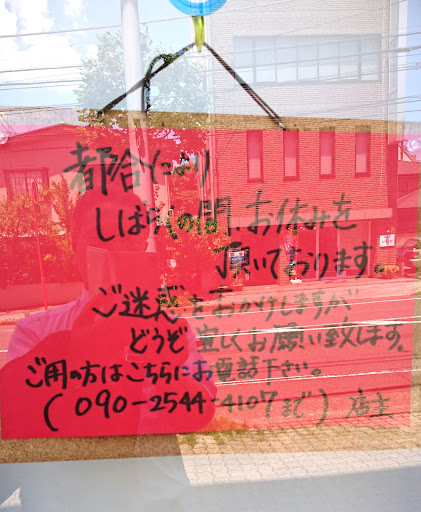 都合により
しばらくの間、お休みを
頂いております
ご迷惑をおかけしますが
どうぞ宜しくお願い致します。
ご用の方はこちらにお電話下さい。
(090-2544-4107まで) 店主